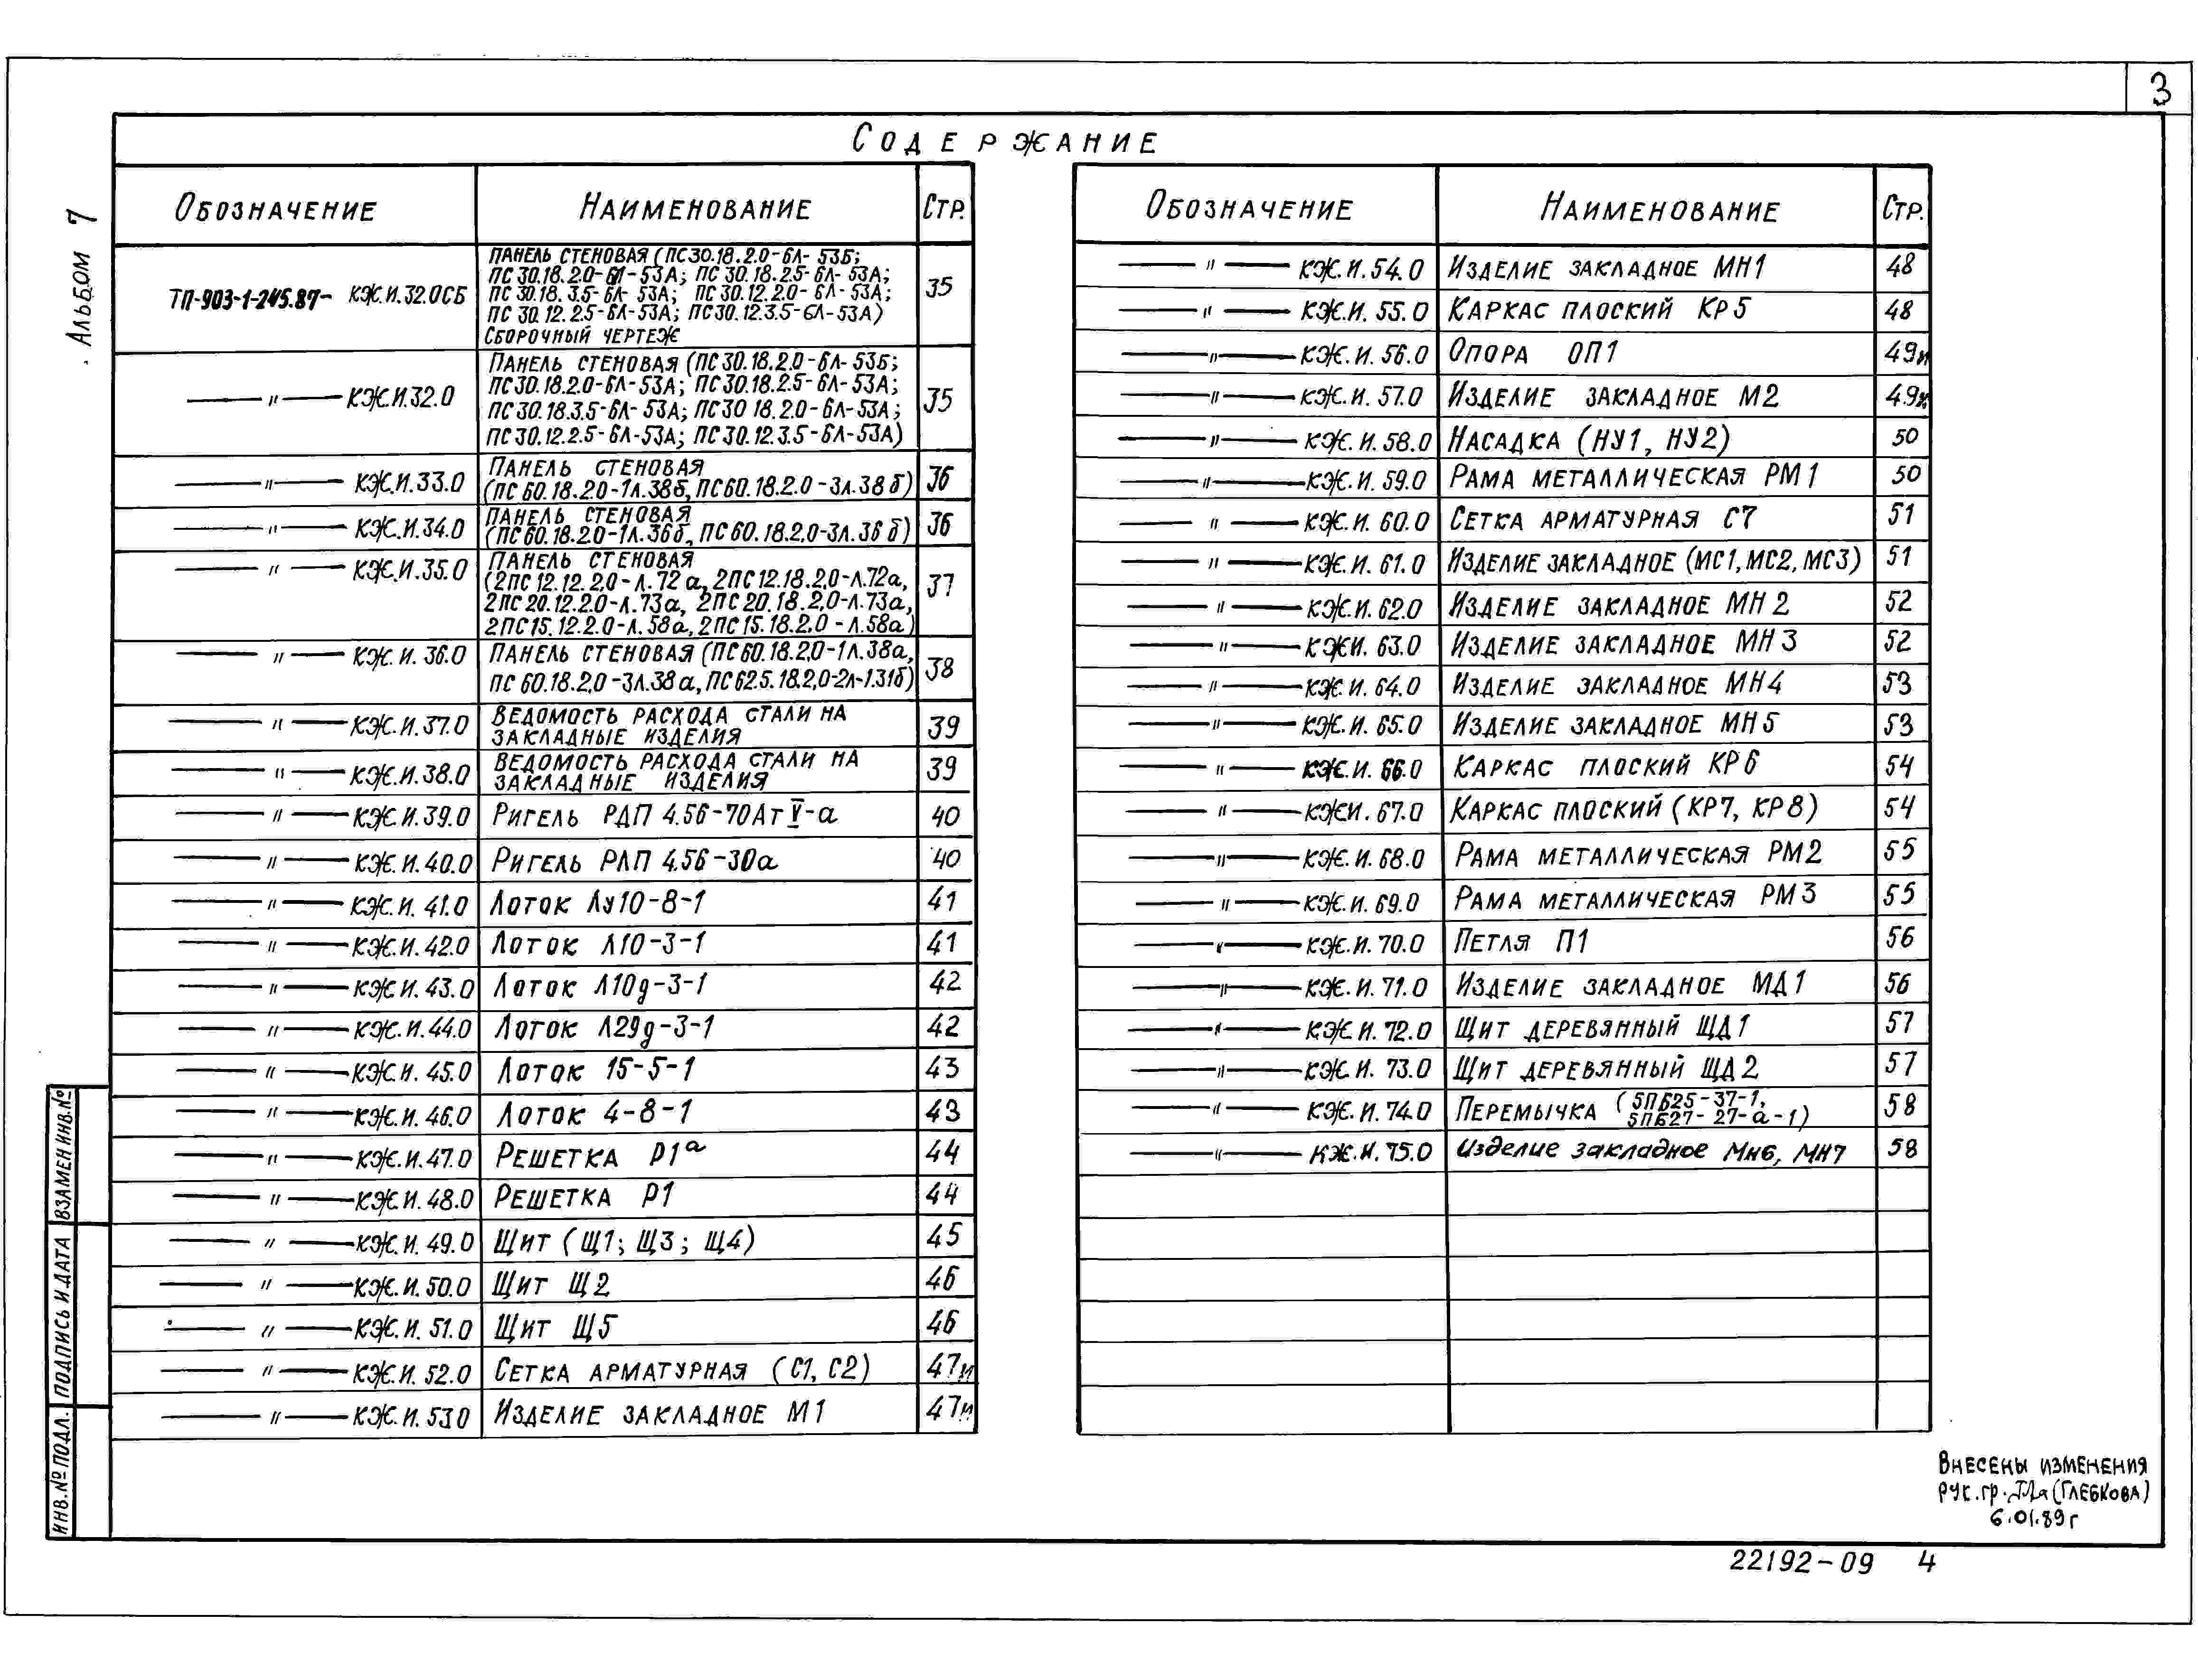 3
Содержание
Альбом 7
Обозначение Наименование Стр.
ТП-903-1-245.87- КЖ.И.32.0СБ
Панель стеновая (ПС30.18.2.0-6Л-53Б;
ПС30.18.2.0-6Л-53А; ПС30.18.2.5-6Л-53А;
ПС30.18.3.5-6Л-53А; ПС30.12.2.0-6Л-53А;
ПС30.12.2.5-6Л-53А; ПС30.12.3.5-6Л-53А)
Сборочный чертеж
35
—— " —— КЖ.И.32.0
Панель стеновая (ПС30.18.2.0-6Л-53Б;
ПС30.18.2.0-6Л-53А; ПС30.18.2.5-6Л-53А;
ПС30.18.3.5-6Л-53А; ПС30 18.2.0-6Л-53А;
ПС30.12.2.5-6Л-53А; ПС30.12.3.5-6Л-53А)
35
—— " —— КЖ.И.33.0
Панель стеновая
(ПС60.18.2.0-1Л.38б, ПС60.18.2.0-3Л.38б)
36
—— " —— КЖ.И.34.0
Панель стеновая
(ПС60.18.2.0-1Л.36б, ПС60.18.2.0-3Л.36б)
36
—— " —— КЖ.И.35.0
Панель стеновая
(2ПС12.12.2.0-Л.72а, 2ПС12.18.2.0-Л.72а,
2ПС20.12.2.0-Л.73а, 2ПС20.18.2.0-Л.73а,
2ПС15.12.2.0-Л.58а, 2ПС15.18.2.0-Л.58а)
37
—— " —— КЖ.И.36.0
Панель стеновая (ПС60.18.2.0-1Л.38а,
ПС60.18.2.0-3Л.38а, ПС62.5.18.2.0-2Л-1.31б)
38
—— " —— КЖ.И.37.0
Ведомость расхода стали на
закладные изделия
39
—— " —— КЖ.И.38.0
Ведомость расхода стали на
закладные изделия
39
—— " —— КЖ.И.39.0 Ригель РДП 4.56-70АтV-а 40
—— " —— КЖ.И.40.0 Ригель РЛП 4.56-30а 40
—— " —— КЖ.И.41.0 Лоток Лу10-8-1 41
—— " —— КЖ.И.42.0 Лоток Л10-3-1 41
—— " —— КЖ.И.43.0 Лоток Л10д-3-1 42
—— " —— КЖ.И.44.0 Лоток Л29д-3-1 42
—— " —— КЖ.И.45.0 Лоток 15-5-1 43
—— " —— КЖ.И.46.0 Лоток 4-8-1 43
—— " —— КЖ.И.47.0 Решетка Р1а 44
—— " —— КЖ.И.48.0 Решетка Р1 44
—— " —— КЖ.И.49.0 Щит (Щ1; Щ3; Щ4) 45
—— " —— КЖ.И.50.0 Щит Щ2 46
—— " —— КЖ.И.51.0 Щит Щ5 46
—— " —— КЖ.И.52.0 Сетка арматурная (С1, С2) 47и
—— " —— КЖ.И.53.0 Изделие закладное М1 47и
Обозначение Наименование Стр.
—— " —— КЖ.И.54.0 Изделие закладное МН1 48
—— " —— КЖ.И.55.0 Каркас плоский КР5 48
—— " —— КЖ.И.56.0 Опора ОП1 49и
—— " —— КЖ.И.57.0 Изделие закладное М2 49и
—— " —— КЖ.И.58.0 Насадка (НУ1, НУ2) 50
—— " —— КЖ.И.59.0 Рама металлическая РМ1 50
—— " —— КЖ.И.60.0 Сетка арматурная С7 51
—— " —— КЖ.И.61.0 Изделие закладное (МС1, МС2, МС3) 51
—— " —— КЖ.И.62.0 Изделие закладное МН2 52
—— " —— КЖИ.63.0 Изделие закладное МН3 52
—— " —— КЖ.И.64.0 Изделие закладное МН4 53
—— " —— КЖ.И.65.0 Изделие закладное МН5 53
—— " —— КЖ.И.66.0 Каркас плоский КР6 54
—— " —— КЖИ.67.0 Каркас плоский (КР7, КР8) 54
—— " —— КЖ.И.68.0 Рама металлическая РМ2 55
—— " —— КЖ.И.69.0 Рама металлическая РМ3 55
—— " —— КЖ.И.70.0 Петля П1 56
—— " —— КЖ.И.71.0 Изделие закладное МД1 56
—— " —— КЖ.И.72.0 Щит деревянный ЩД1 57
—— " —— КЖ.И.73.0 Щит деревянный ЩД2 57
—— " —— КЖ.И.74.0 Перемычка (5ПБ25-37-1, 5ПБ27-27-а-1) 58
—— " —— КЖ.И.75.0 Изделие закладное Мн6, МН7 58
Взамен инв.№
Подпись и дата
Инв.№ подл.
Внесены изменения
рук.гр. (Глебкова)
6.01.89г
22192-09 4